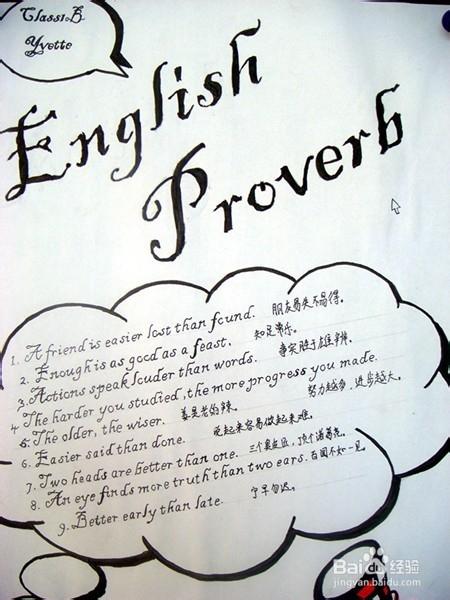 Class1B
Yvette
English
Proverb
1. A friend is easier lost than found. 朋友易失不易得。
2. Enough is as good as a feast. 知足常乐。
3. Actions speak louder than words. 事实胜于雄辩。
4 The harder you studied, the more progress you made.
努力越多，进步越大。
5. The older, the wiser. 姜是老的辣。
6. Easier said than done. 说起来容易做起来难。
7. Two heads are better than one. 三个臭皮匠，顶个诸葛亮。
8. An eye finds more truth than two ears. 百闻不如一见。
9. Better early than late. 宁早勿迟。
Baidu 经验
jingyan.baidu.com